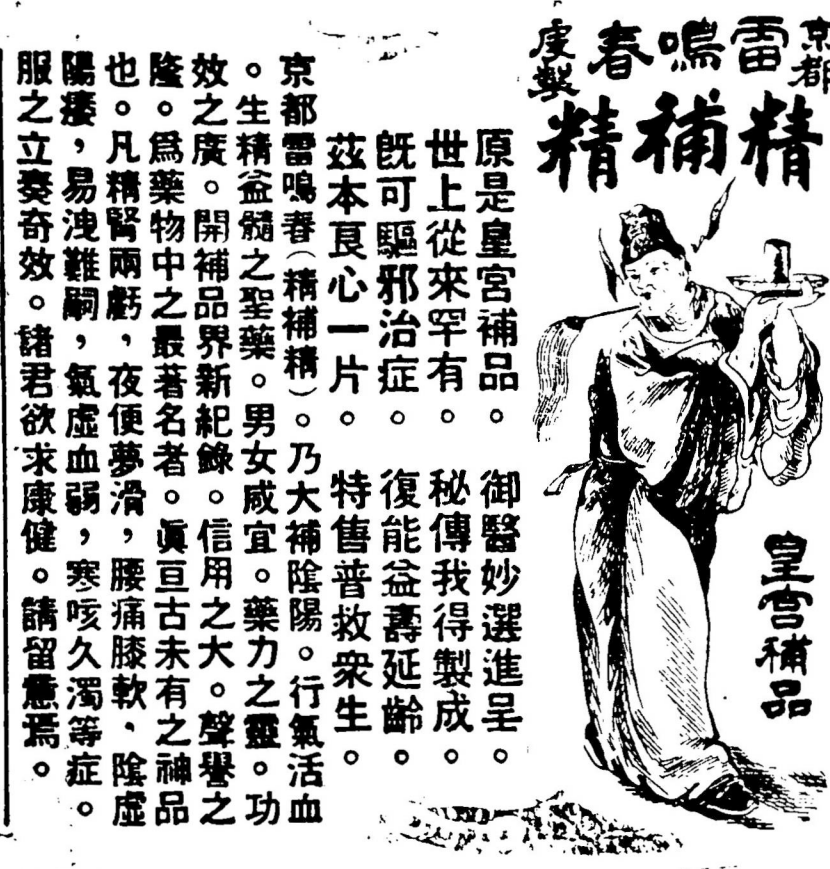 京都雷鳴春虔製
精補精
皇宮補品
原是皇宮補品。御醫妙選進呈。
世上從來罕有。秘傳我得製成。
既可驅邪治症。復能益壽延齡。
茲本良心一片。特售普救眾生。
京都雷鳴春（精補精）。乃大補陰陽。行氣活血
。生精益髓之聖藥。男女咸宜。藥力之靈。功
效之廣。開補品界新紀錄。信用之大。聲譽之
隆。爲藥物中之最著名者。眞亘古未有之神品
也。凡精腎兩虧，夜便夢滑，腰痛膝軟，陰虛
陽痿，易洩難嗣，氣虛血弱，寒咳久濁等症。
服之立奏奇效。諸君欲求康健。請留意焉。